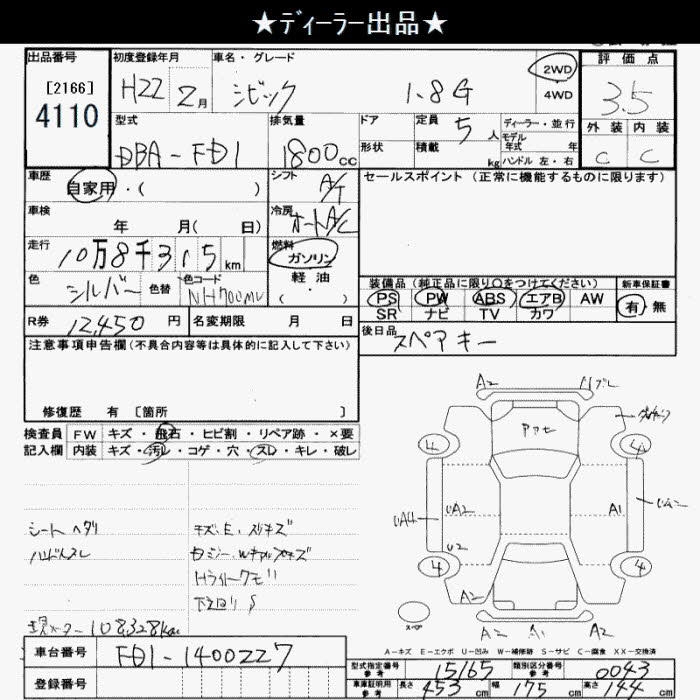 ★ディーラー出品★
出品番号 初度登録年月 車名・グレード 評価点
[2166] H22 2月 シビック 1.8G 2WD 3.5
4110 4WD
型式 排気量 ドア 定員 5人 ディーラー・並行 外装 内装
モデル
DBA-FD1 1800cc 形状 積載 kg 年式 年 C C
ハンドル 左・右
車歴 自家用・( ) シフト A/T セールスポイント (正常に機能するものに限ります)
車検 年 月( 日) 冷房 オートA/C
走行 10万8千315km 燃料 ガソリン
軽油
( )
色 シルバー 色替 色コード NH700MU
装備品 (純正品に限り○をつけてください) 新車保証書
PS PW ABS エアB AW 有・無
SR ナビ TV カワ
R券 12,450円 名変期限 月 日 後日品 スペアキー
注意事項申告欄 (不具合内容等は具体的に記入して下さい)
修復歴 有 [箇所 ]
検査員 FW キズ・飛石・ヒビ割・リペア跡・×要
記入欄 内装 キズ・汚レ・コゲ・穴・スレ・キレ・破レ
A2
4 4
UA4 UA2 A1
U2
4 4
A2 A2
A2 A1 A2
スペア
シートヘタリ
ハンドルスレ
Hライトクモリ
下廻りS
現メーター108,328km
A-キズ E-エクボ U-凹み W-補修跡 S-サビ C-腐食 XX-交換済
車台番号 FD1-1400227
登録番号
型式指定番号 参考 15165 類別区分番号 参考 0043
車庫証明用 参考 長さ 453cm 幅 175cm 高さ 144cm